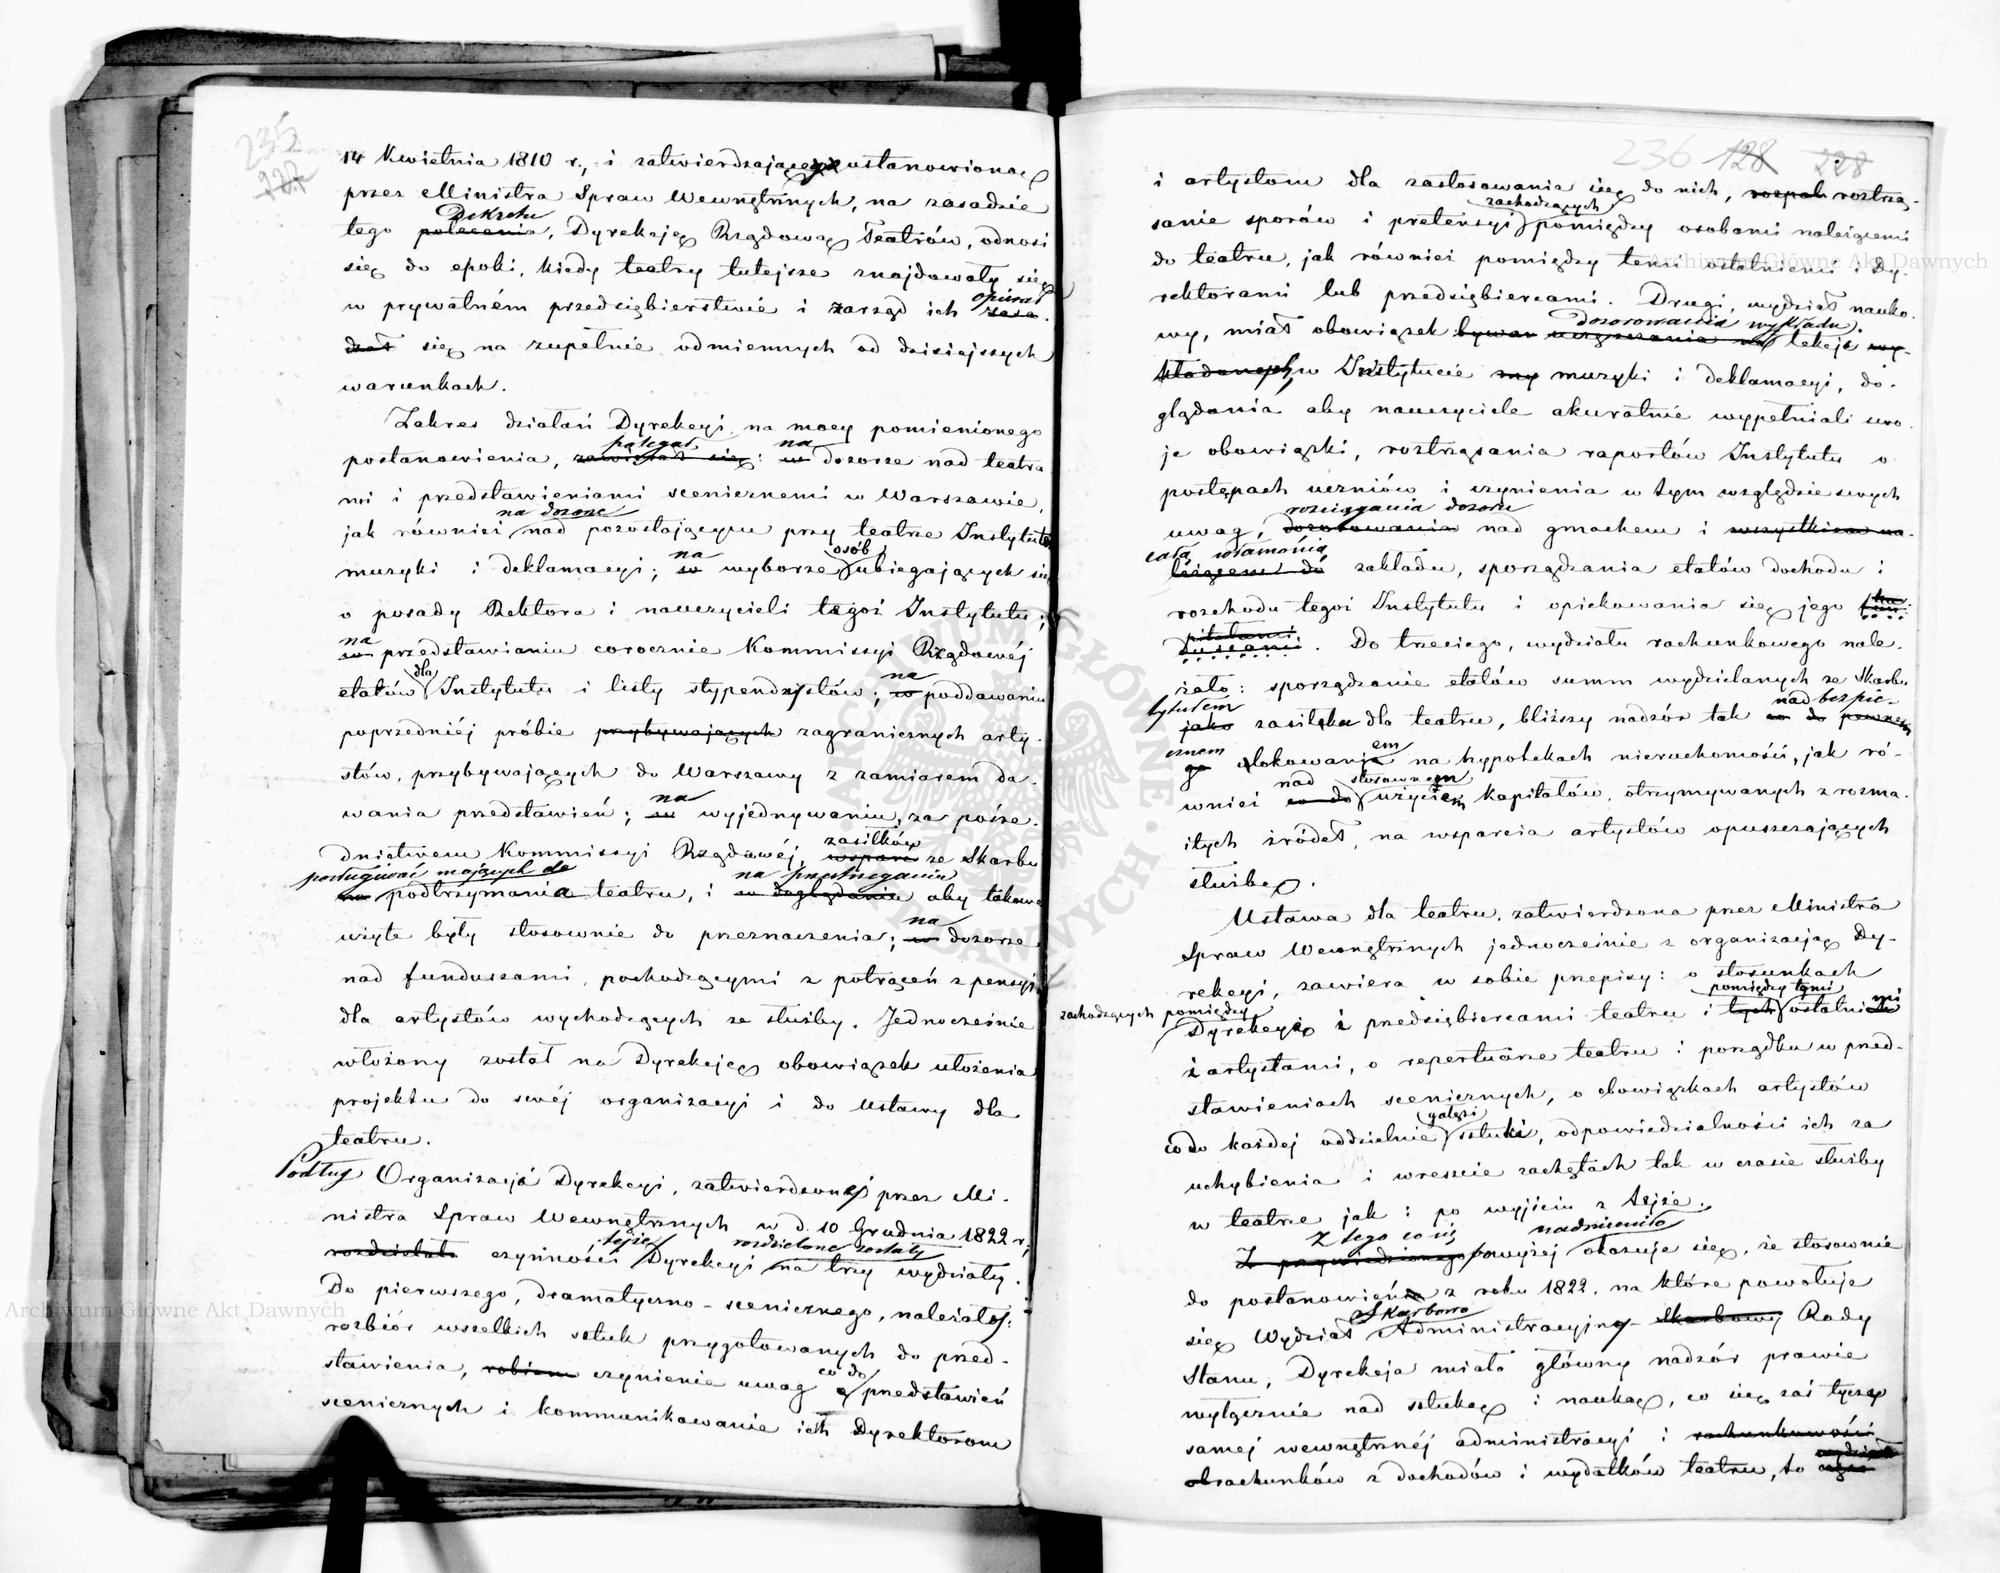 235
227
14 Kwietnia 1810 r., i zatwierdzającego ustanowioną
przez Ministra Spraw Wewnętrznych, na zasadzie
Dekretu
tego polecenia, Dyrekcję Rządową Teatrów, odnosi
się do epoki, kiedy teatry tutejsze znajdowały się
opierał
w prywatném przedsiębierstwie i zarząd ich zasa-
dzał się na zupełnie odmiennych od dzisiejszych
warunkach.
Zakres działań Dyrekcyi, na mocy pomienionego
polegał na
postanowienia, zawierał się: w dozorze nad teatra
mi i przedstawieniami scenicznemi w Warszawie,
na dozorze
jak również nad pozostającym przy teatrze Instytutem
na osób
muzyki i deklamacyi; w wyborze ubiegających się
o posady Rektora i nauczycieli tegoż Instytutu;
na
w przedstawianiu corocznie Kommissyi Rządowéj
dla na
etatów Instytutu i listy stypendzystów; w poddawaniu
poprzedniéj próbie przybywających zagranicznych arty-
stów, przybywających do Warszawy z zamiarem da-
na
wania przedstawień; w wyjednywaniu, za pośre-
zasiłków
dnictwem Kommissyi Rządowéj, wsparc ze Skarbu
posługiwać mających do na przestrzeganiu
na podtrzymania teatru, i w doglądaniu aby takowe
na
użyte były stosownie do przeznaczenia; w dozorze
nad funduszami, pochodzącymi z potrąceń z pensyi
dla artystów wychodzących ze służby. Jednocześnie
włożony został na Dyrekcję obowiązek ułożenia
projektu do swéj organizacyi i do Ustawy dla
teatru.
Podług Organizacyi Dyrekcyi, zatwierdzonej przez Mi-
nistra Spraw Wewnętrznych w d. 10 Grudnia 1822 r,
tejże rozdzielone zostały
rozdzielała czynności Dyrekcyi na trzy wydziały.
Do pierwszego, dramatyczno-scenicznego, należał:
rozbiór wszelkich sztuk przygotowanych do przed-
co do
stawienia, robienie czynienie uwag o przedstawień
scenicznych i kommunikawanie ich Dyrektorom
236 128 228
i artystom dla zastosowania się do nich, rozpoh roztrzą-
zachodzących
sanie sporów i pretensyi pomiędzy osobami należącemi
do teatru, jak również pomiędzy temi ostatniemi i Dy-
rektorami lub przedsiębiercami. Drugi, wydział nauko-
dozorowania wykładu
wy, miał obowiązek bywan uczęszczania na lekcje wy-
kładanych, w Instytucie my muzyki i deklamacyi, do-
glądania aby nauczyciele akuratnie wypełniali swo-
je obowiązki, roztrząsania raportów Instytutu o
postępach uczniów i czynienia w tym względzie swych
rozciągania dozoru
uwag, dozorowania nad gmachem i wszystkiem na-
całą własnością
leżącem do zakładu, sporządzania etatów dochodu i
rozchodu tegoż Instytutu i opiekowania się jego fun-
ka
pitałami
duszami. Do trzeciego, wydziału rachunkowego nale-
żało: sporządzanie etatów summ wydzielanych ze Skarbu
tytułem nad bezpie-
jako zasiłku dla teatru, bliższy nadzór tak co do pewne-
cznem em
go ulokowanie na hypotekach nieruchomości, jak ró-
nad stosownem
wnież co do użyciem kapitałów, otrzymywanych z rozma-
itych źródeł, na wsparcia artystów opuszczających
służbę.
Ustawa dla teatru, zatwierdzona przez Ministra
Spraw Wewnętrznych jednocześnie z organizacją Dy-
rekcyi, zawiera w sobie przepisy: o stosunkach
zachodzących pomiędzy pomiędzy tymi
Dyrekcyą i przedsiębiercami teatru i tych ostatnimi
i artystami, o repertuarze teatru i porządku w przed-
stawieniach scenicznych, o obowiązkach artystów
gałęzi
co do każdej oddzielnie sztuki, odpowiedzialności ich za
uchybienia i wreszcie zachętach tak w czasie służby
w teatrze jak i po wyjściu z tejże.
Z tego co się nadmieniło
Z przywiedzionego powyżej okazuje się, że stosownie
do postanowień z roku 1822, na które powołuje
Skarbowo
się Wydział Administracyjny Skarbowy Rady
Stanu, Dyrekcja miała główny nadzór prawie
wyłącznie nad sztuką i nauką, co się zaś tyczą
samej wewnętrznéj administracyi i rachunkowości
wydział
obrachunków z dochodów i wydatków teatru, to
Archiwum Główne Akt Dawnych
Archiwum Główne Akt Dawnych
ARCHIWUM GŁÓWNE AKT DAWNYCH